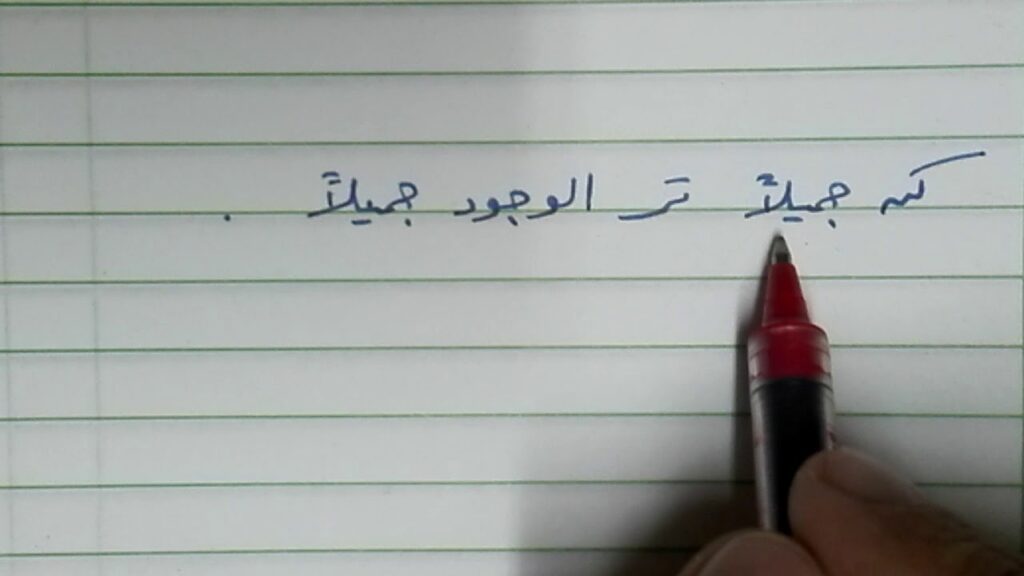 كن جميلاً تر الوجود جميلاً .